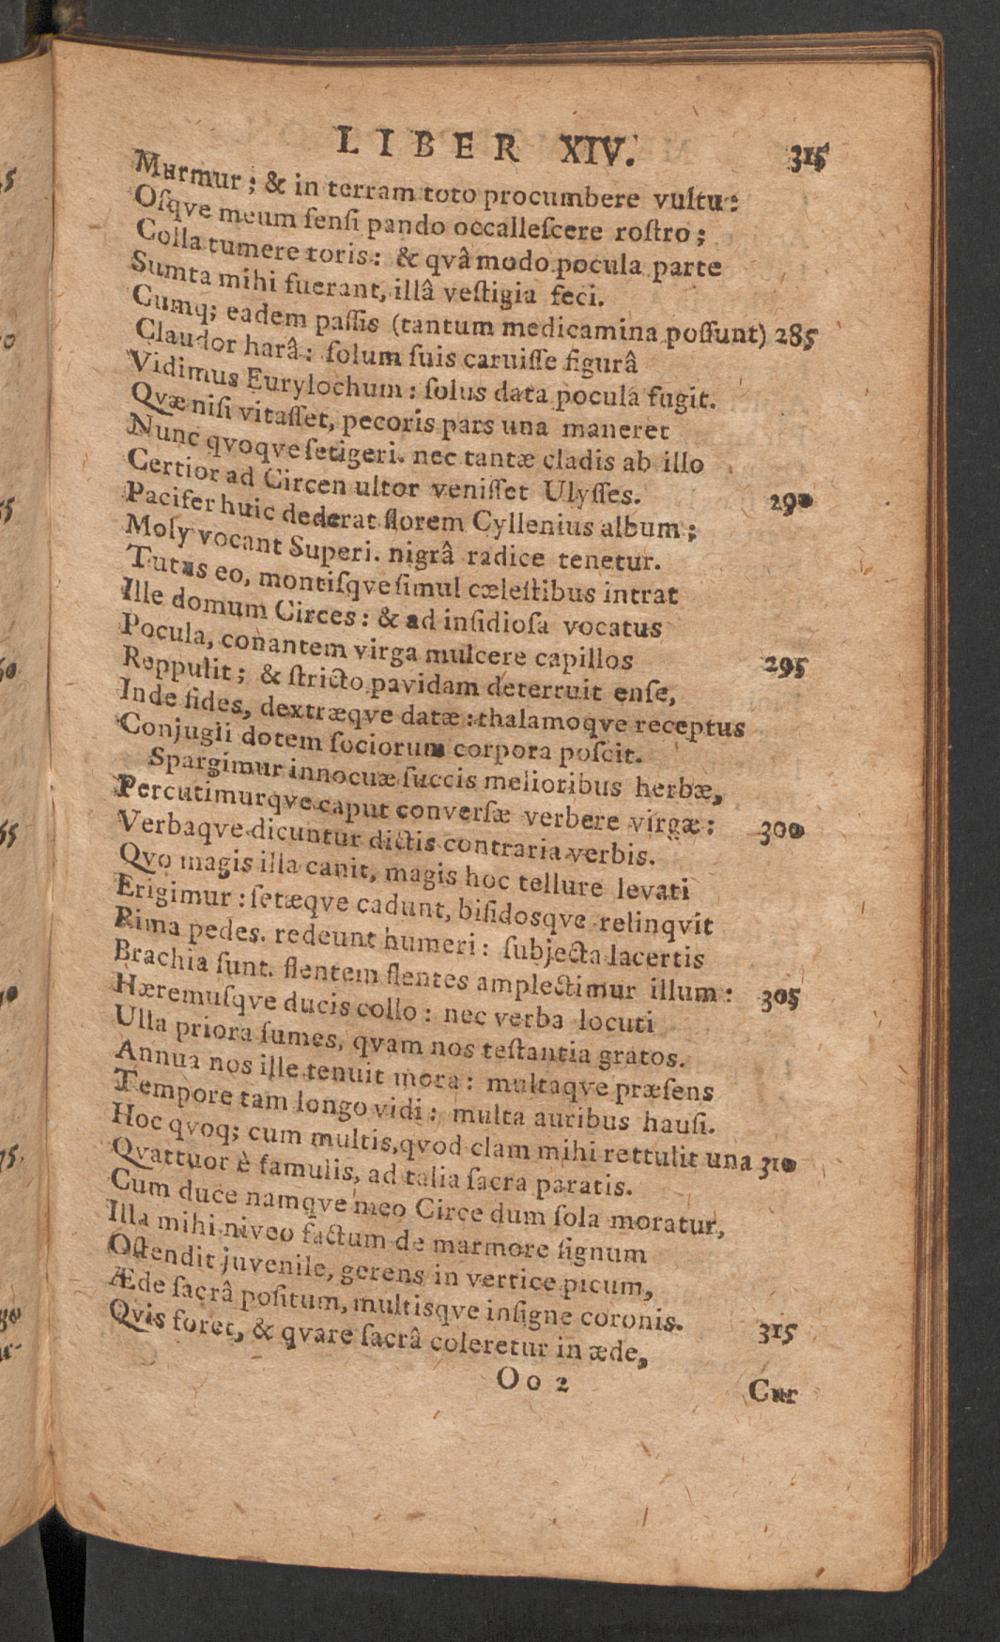 LIBER XIV. 315
Murmur; & in terram toto procumbere vultu:
Oſqve meum ſenſi pando occalleſcere roſtro;
Colla tumere toris: & qvâ modo pocula parte
Sumta mihi fuerant, illâ veſtigia feci.
Cumq; eadem paſſis (tantum medicamina poſſunt) 285
Claudor harâ: ſolum ſuis caruiſſe figurâ
Vidimus Eurylochum: ſolus data pocula fugit.
Qvæ niſi vitaſſet, pecoris pars una maneret
Nunc qvoqve ſetigeri. nec tantæ cladis ab illo
Certior ad Circen ultor veniſſet Ulyſſes. 290
Pacifer huic dederat florem Cyllenius album;
Moly vocant Superi. nigrâ radice tenetur.
Tutus eo, montiſqve ſimul cæleſtibus intrat
Ille domum Circes: & ad inſidioſa vocatus
Pocula, conantem virga mulcere capillos 295
Reppulit; & ſtricto pavidam deterruit enſe,
Inde fides, dextræqve datæ: thalamoqve receptus
Conjugii dotem ſociorum corpora poſcit.
Spargimur innocuæ ſuccis melioribus herbæ,
Percutimurqve caput converſæ verbere virgæ; 300
Verbaqve dicuntur dictis contraria verbis.
Qvo magis illa canit, magis hoc tellure levati
Erigimur: ſetæqve cadunt, bifidosqve relinqvit
Rima pedes. redeunt humeri: ſubjecta lacertis
Brachia ſunt. flentem flentes amplectimur illum: 305
Hæremuſqve ducis collo: nec verba locuti
Ulla priora ſumes, qvam nos teſtantia gratos.
Annua nos ille tenuit mora: multaqve præſens
Tempore tam longo vidi; multa auribus hauſi.
Hoc qvoq; cum multis, qvod clam mihi rettulit una 310
Qvattuor è famulis, ad talia ſacra paratis.
Cum duce namqve meo Circe dum ſola moratur,
Illa mihi niveo factum de marmore ſignum
Oſtendit juvenile, gerens in vertice picum,
Æde ſacrâ poſitum, multisqve inſigne coronis. 315
Qvis foret, & qvare ſacrâ coleretur in æde,
Oo 2 Cur